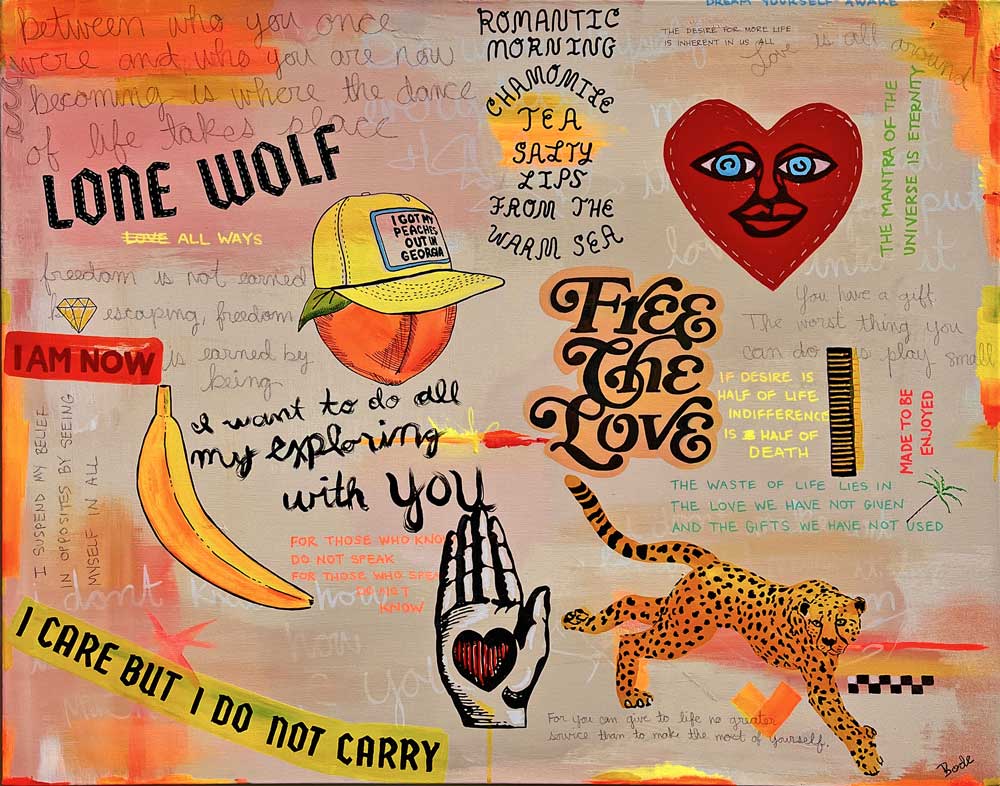 between who you once
were and who you are now
becoming is where the dance
of life takes place
ROMANTIC
MORNING
CHAMOMILE
TEA
SALTY
LIPS
FROM THE
WARM SEA
DREAM YOURSELF AWAKE
THE DESIRE FOR MORE LIFE
IS INHERENT IN US ALL
Love is all around
LONE WOLF
LOVE ALL WAYS
I GOT MY
PEACHES
OUT IN
GEORGIA
THE MANTRA OF THE
UNIVERSE IS ETERNITY
freedom is not earned
by escaping, freedom
is earned by
being
I AM NOW
FREE
The
LOVE
You have a gift.
The worst thing you
can do is play small
IF DESIRE IS
HALF OF LIFE
INDIFFERENCE
IS HALF OF
DEATH
MADE TO BE
ENJOYED
I want to do all
my exploring
with you
I SUSPEND MY BELIEF
IN OPPOSITES BY SEEING
MYSELF IN ALL
THE WASTE OF LIFE LIES IN
THE LOVE WE HAVE NOT GIVEN
AND THE GIFTS WE HAVE NOT USED
FOR THOSE WHO KNOW
DO NOT SPEAK
FOR THOSE WHO SPEAK
DO NOT
KNOW
i dont know how
you
I CARE BUT I DO NOT CARRY
For you can give to life no greater
service than to make the most of yourself.
Bode